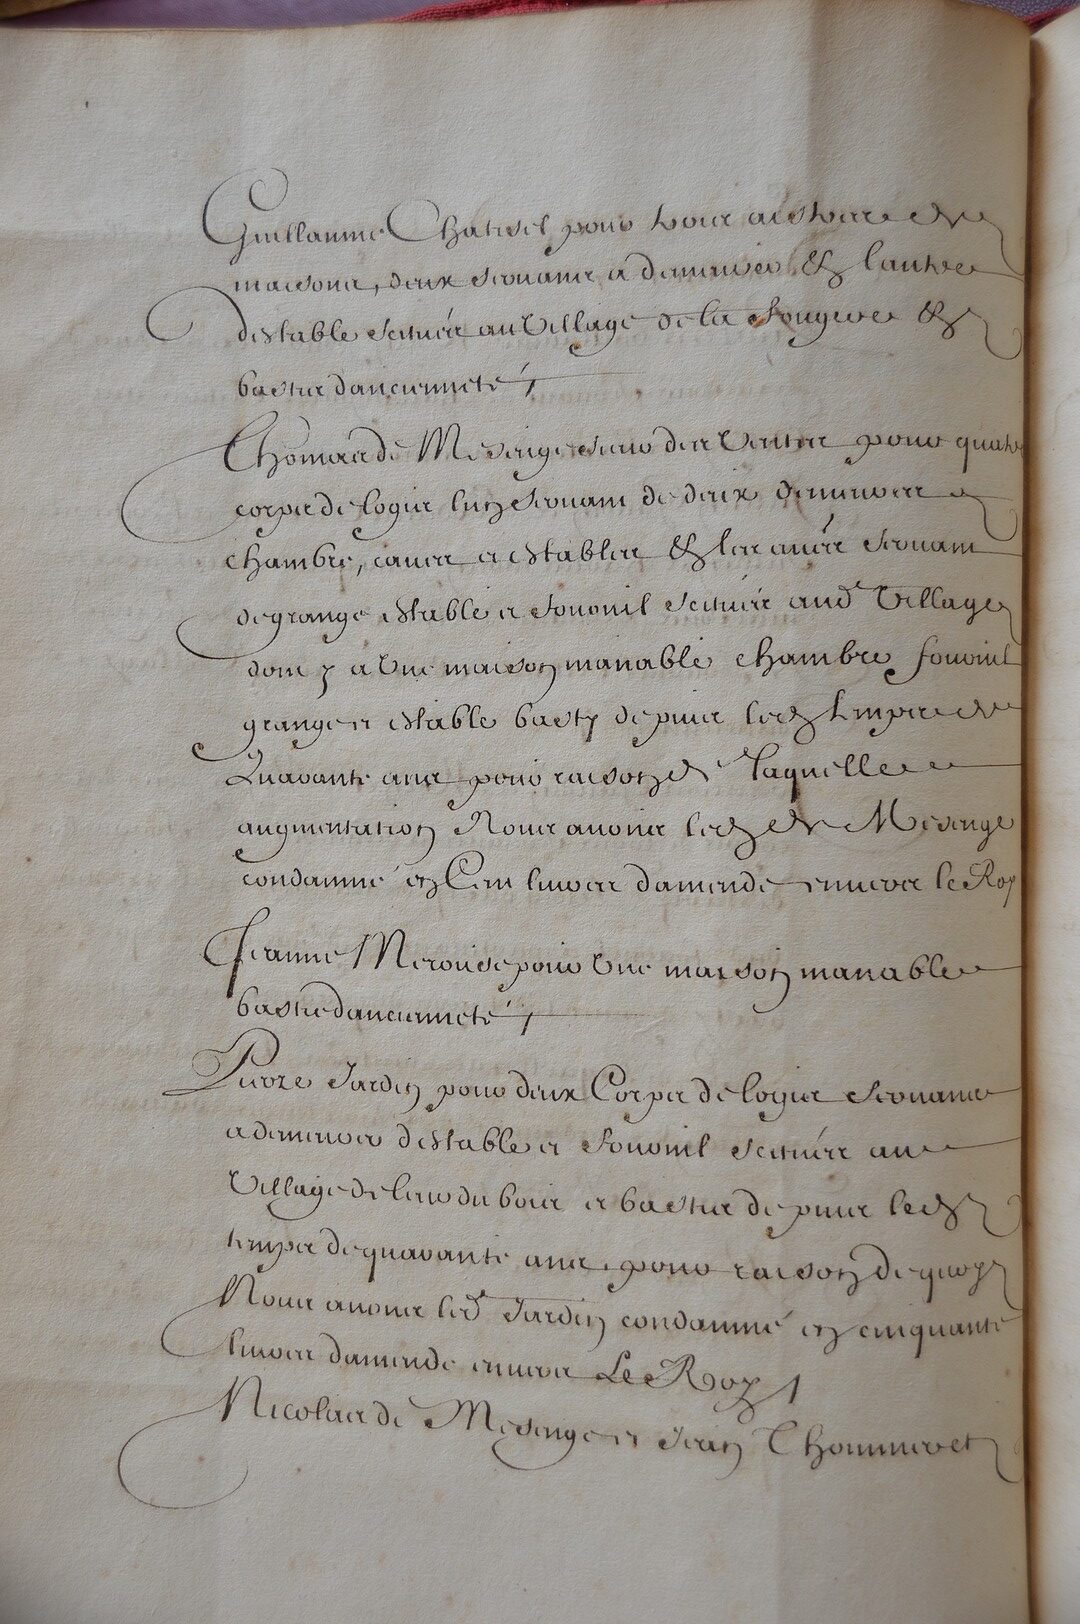 Guillaume Chatisel pour trois austres
maisons, deux servants a demeurer & lautre
destable scituéé au Village de la Fougere &
basties dancienneté /
Thomas de Mesenge sieur des Ventes pour quatre
corps de logis lun servant de deux demeures
chambre, caves et estables & les autres servant
de grange estable et fournil scituéé aud Village
dont y a Une maison manable chambre fournil
grange et estable basty depuis led temps de
Quarante ans pour raison de laquelle
augmentation Nous avons led de Mesenge
condamné en Cent livres damende envers le Roy
Jeanne pour Une maison manable
bastie dancienneté /
Pierre Jardin pour deux Corps de logis servants
a demeurer destable et fournil scituéé au
Village de lieu du bois et basties depuis led
temps de quarante ans, pour raison de quoy
Nous avons led Jardin condamné en cinquante
livres damende envers Le Roy /
Nicolas de Mesenge et Jean Thommeret